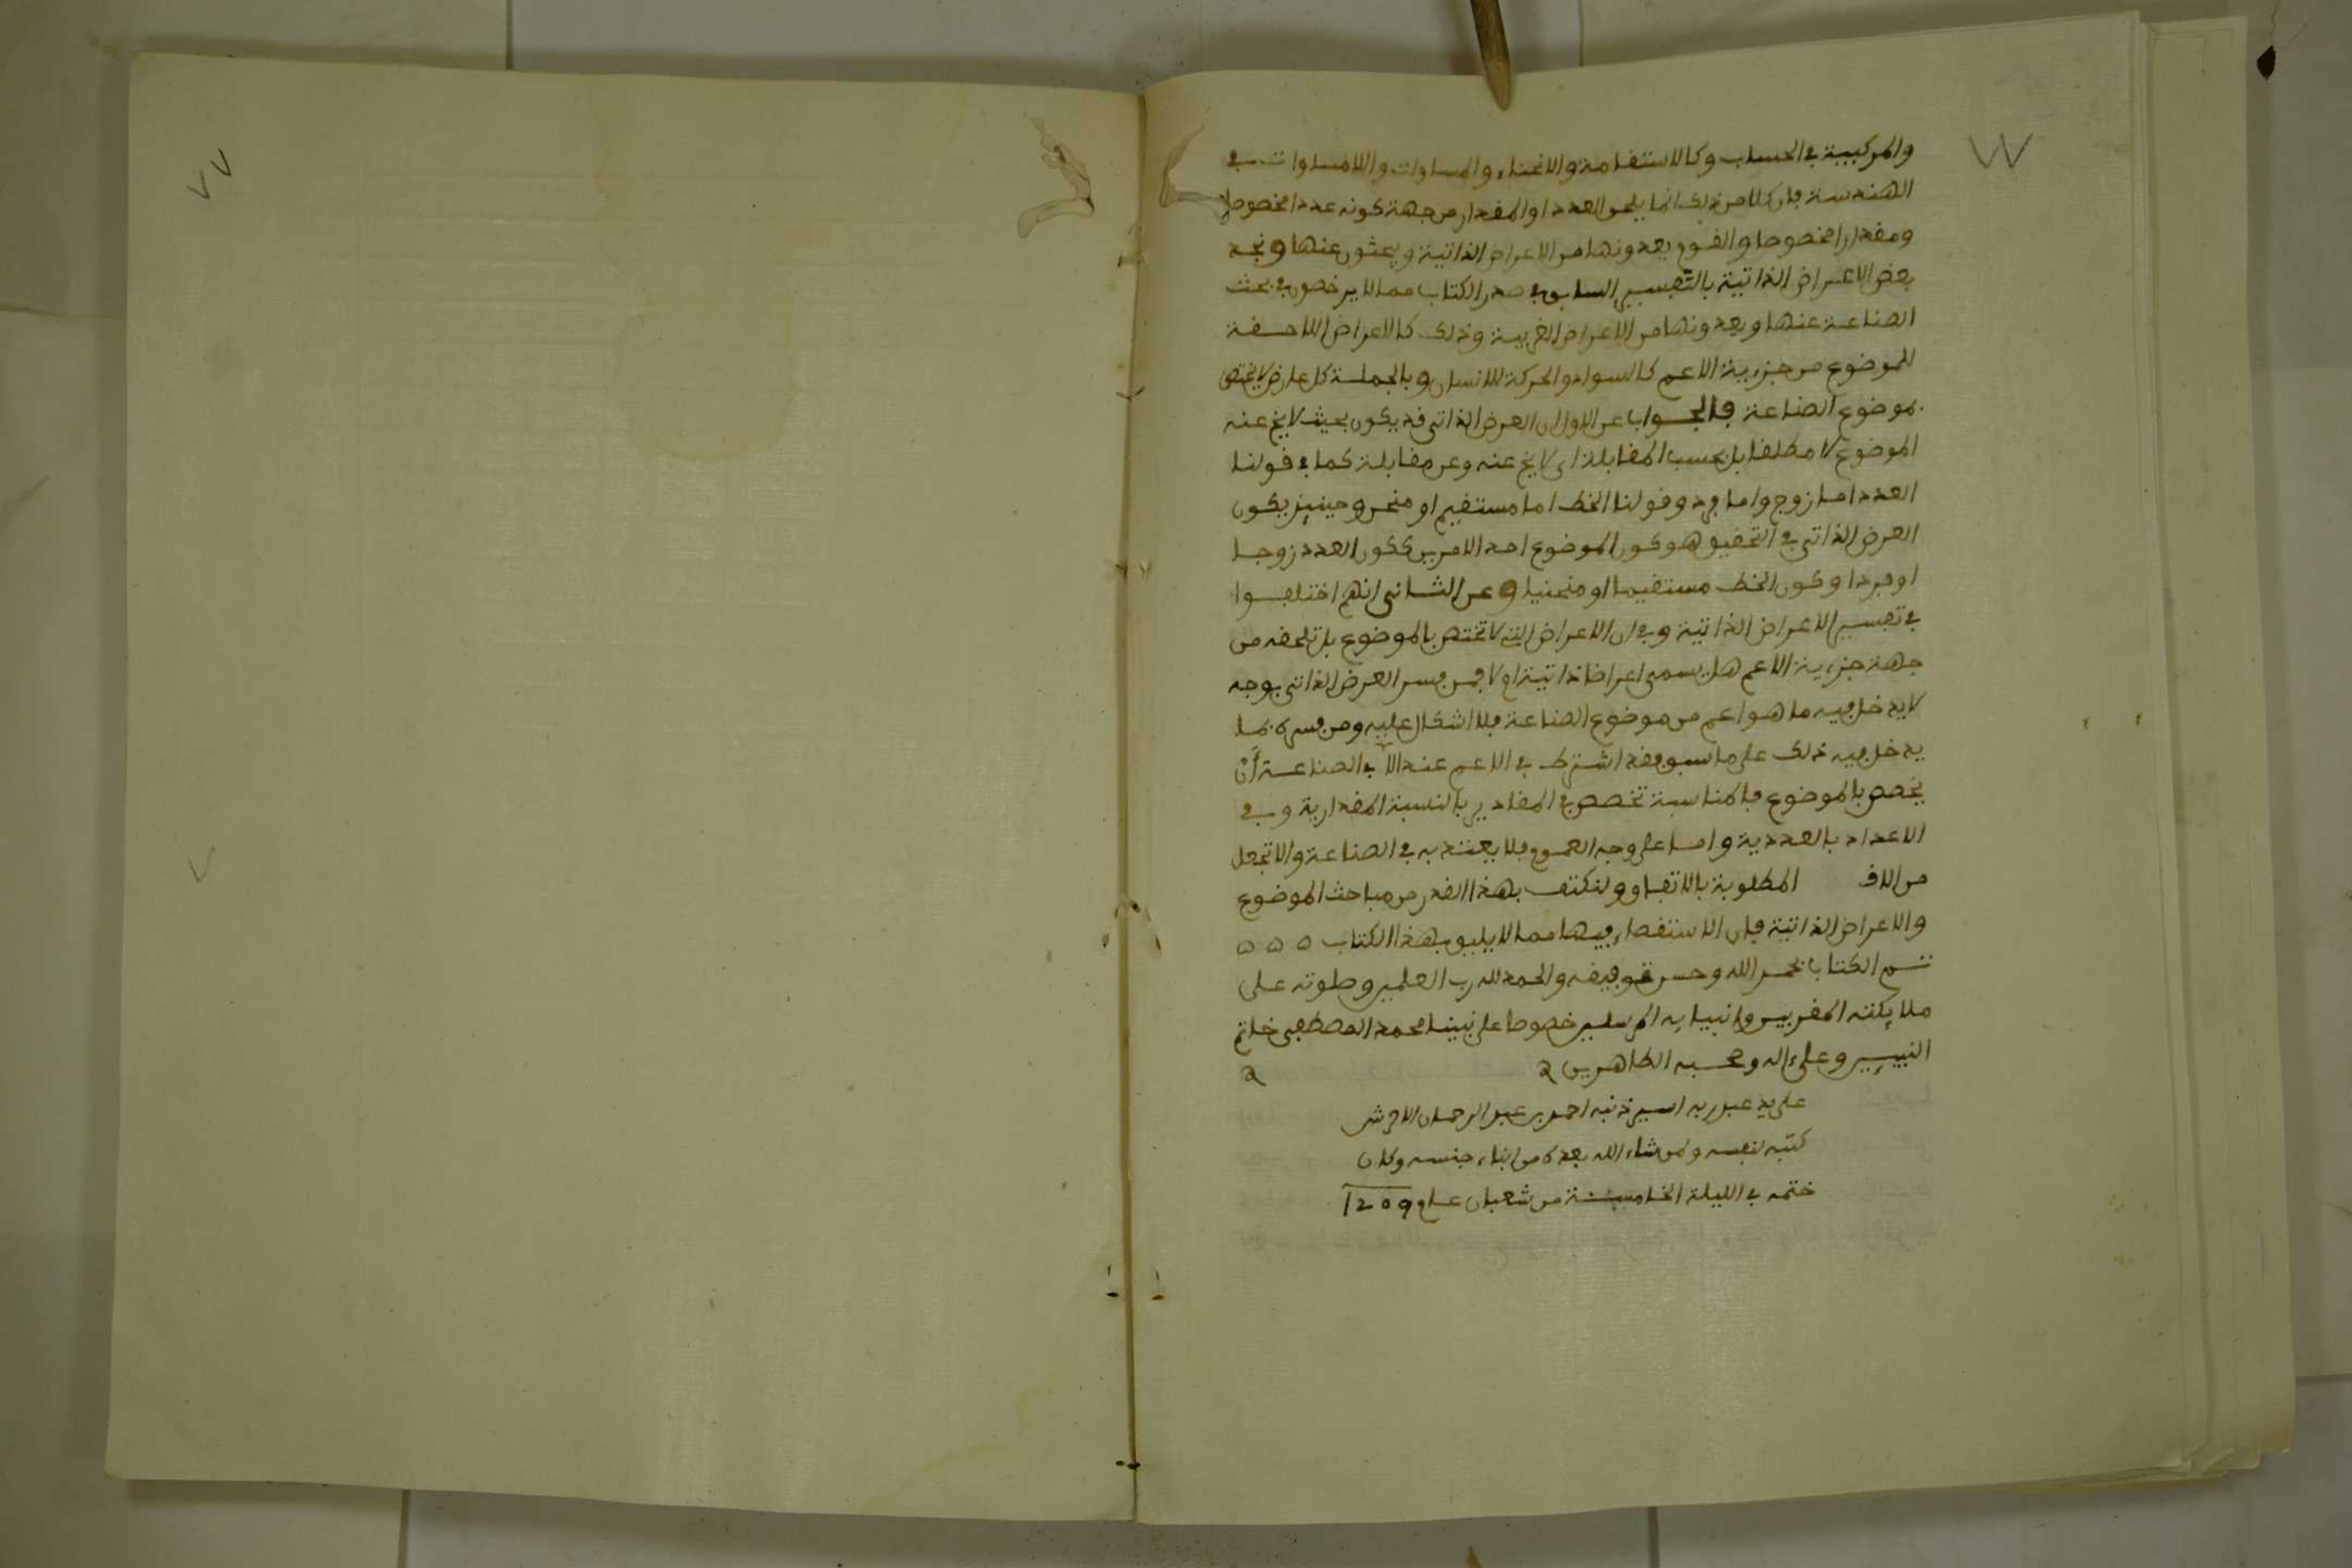 والمركبية في الحساب وكالاستقامة والانحناء والمساوات واللامساوات في
الهندسة فان كلا من ذلك انما يلحق العدد او المقدار من جهة كونه عددا مخصوصا
ومقدارا مخصوصا والقوم يعدونها من الاعراض الذاتية ويبحثون عنها ونجد
بعض الاعراض الذاتية بالتفسير السابق في صدر الكتاب مما لا يرخصون في بحث
الصناعة عنها ويعدونها من الاعراض الغريبة وذلك كالاعراض اللاحقة
للموضوع من جزءية الاعم كالسواد والحركة للانسان وبالجملة كل عارض لا يختص
بموضوع الصناعة فالجواب عن الاول ان العرض الذاتي قد يكون بحيث لا يخ عنه
الموضوع لا مطلقا بل بحسب المقابلة اي لا يخ عنه وعن مقابله كما في قولنا
العدد اما زوج واما فرد وقولنا الخط اما مستقيم او منحن وحينئذ يكون
العرض الذاتي في التحقيق هو كون الموضوع احد الامرين ككون العدد زوجا
او فردا وكون الخط مستقيما او منحنيا وعن الثاني انهم اختلفوا
في تفسير الاعراض الذاتية وفي ان الاعراض التي لا تختص بالموضوع بل تلحقه من
جهة جزءية الاعم هل يسمى اعراضا ذاتية ام لا فمن فسر العرض الذاتي بوجه
لا يدخل فيه ما هو اعم من موضوع الصناعة فلا اشكال عليه ومن فسره بما
يدخل فيه ذلك على ما سبق فقد اشترط في الاعم عند في الصناعة أَنْ
يخصص بالموضوع فالمناسبة تخصص في المقادير بالنسبة المقدارية وفي
الاعداد بالعددية واما على وجه العموم فلا يعتد به في الصناعة والا تجعل
من المطلوبة بالاتفاق ولنكتف بهذا القدر من مباحث الموضوع
والاعراض الذاتية فان الاستقصاء فيها مما لا يليق بهذا الكتاب ه ه ه
تم الكتاب بحمد الله وحسن توفيقه والحمد لله رب العلمين وصلوته على
ملائكته المقربين وانبيائه المرسلين خصوصا على نبينا محمد المصطفى خاتم
النبيين وعلى ءاله وصحبه الطاهرين ه ه
على يد عبد ربه اسير ذنبه احمد بن عبد الرحمان
كتبه لنفسه ولمن شاء الله بعده من ابناء جنسه وكان
ختمه في الليلة الخامسة من شعبان عام 1209
٧٧
٧٧